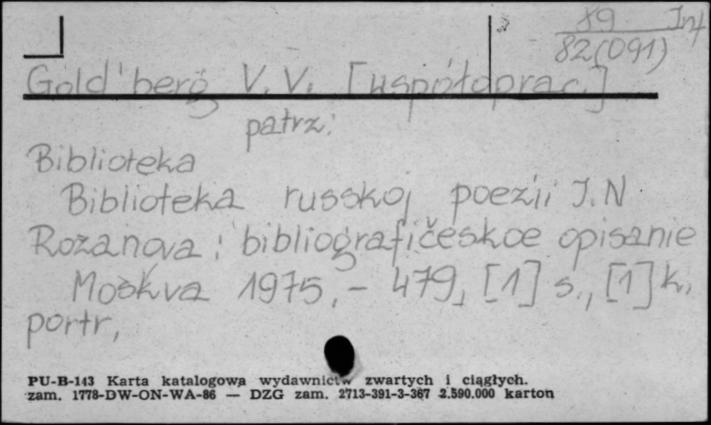 89 Inf
82(091)
Gold'berg V. V. [współoprac.]
patrz:
Biblioteka
Biblioteka russkoj poezii I. N.
Rozanova : bibliografičeskoe opisanie
Moskva 1975, - 479, [1] s., [1] k.
portr,
PU-B-143 Karta katalogowa wydawnictw zwartych i ciągłych.
zam. 1778-DW-ON-WA-86 — DZG zam. 2713-391-3-367 2.590.000 karton